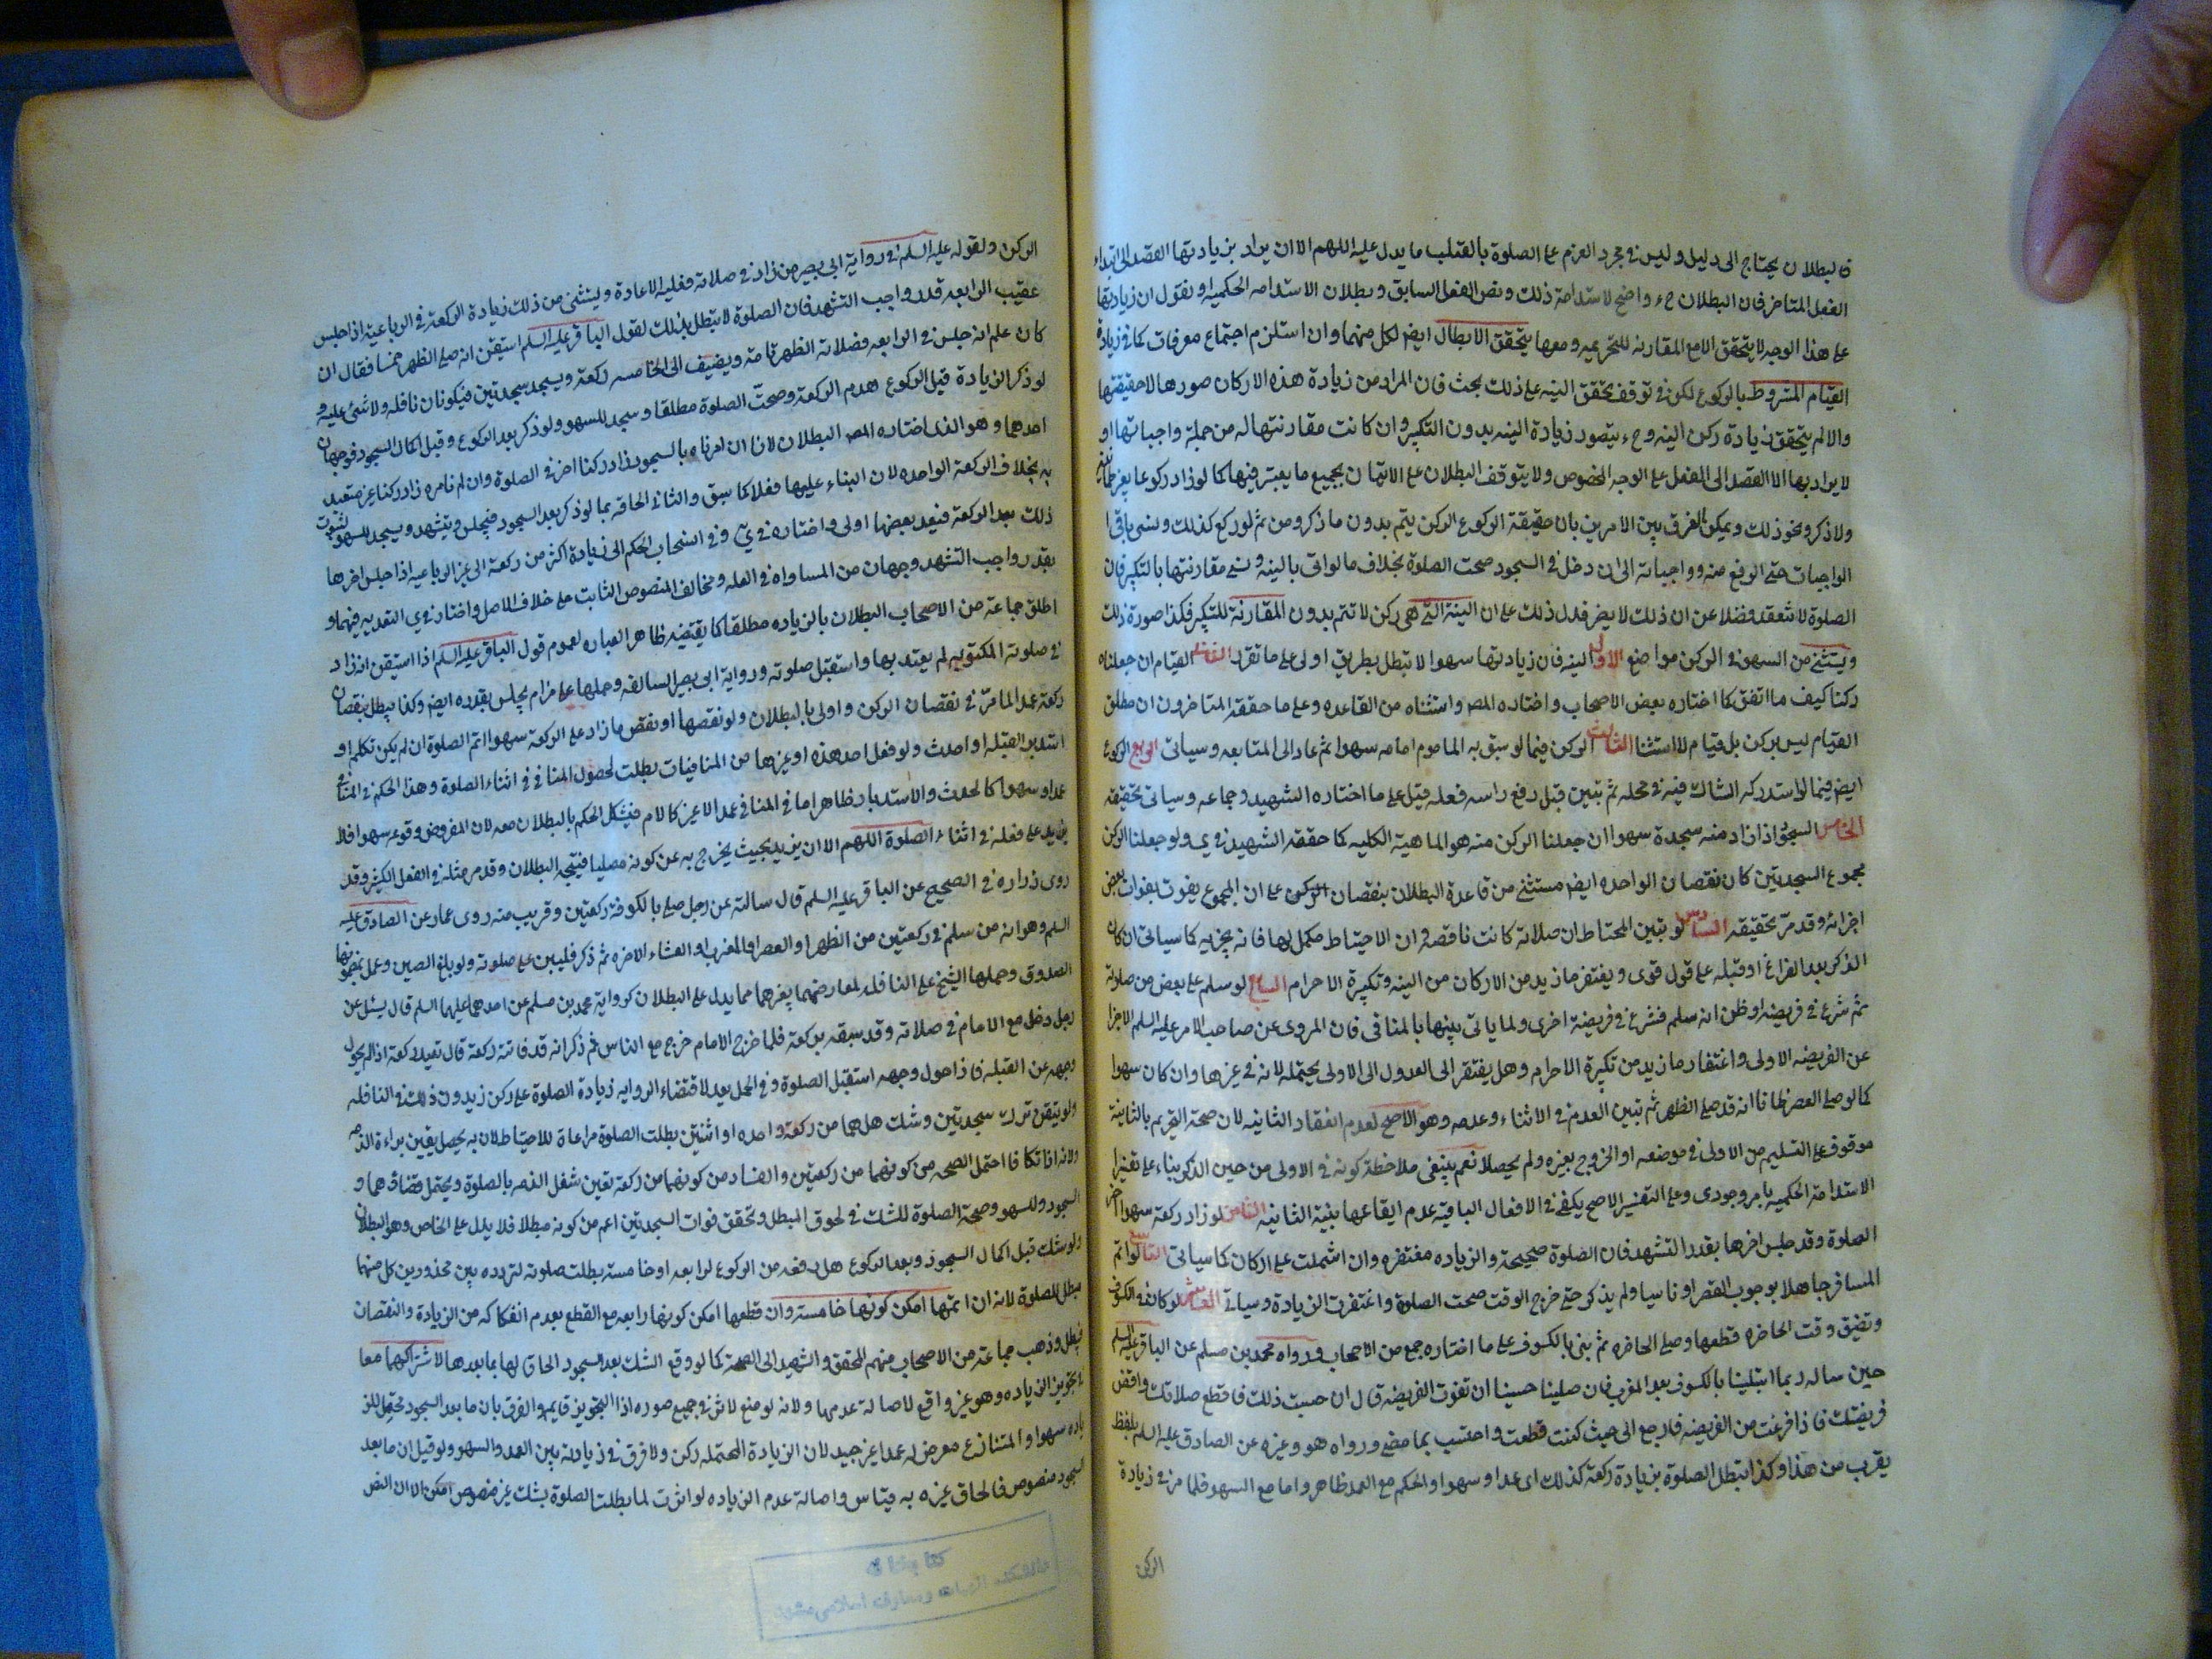 فالبطلان يحتاج الى دليل وليس في مجرد العزم على الصلوة بالقلب ما يدل عليه اللهم الا ان يراد بزيادتها القصد الى ابتداء
الفعل المتاخر فان البطلان ح واضح لاستدامة ذلك ونقض الفعل السابق وبطلان الاستدامه الحكميه او نقول ان زيادتها
على هذا الوجه لا يتحقق الا مع المقارنه للتحريمه ومعها يتحقق الابطال ايضا لكل منهما وان استلزم اجتماع معرفات كما في زيادة
القيام المشروط بالركوع لكن في توقف تحقق النيه على ذلك بحث فان المراد من زيادة هذه الاركان صورها لا حقيقتها
والا لم يتحقق زيادة ركن النيه وح يتصور زيادة النيه بدون التكبير وان كانت مقارنتها له من جملة واجباتها او
لا يراد بها الا القصد الى الفعل على الوجه المخصوص ولا يتوقف البطلان على الاتيان بجميع ما يعتبر فيها كما لو زاد ركوعا بغير طمانينه
ولا ذكر ونحو ذلك ويمكن الفرق بين الامرين بان حقيقة الركوع الركن يتم بدون ما ذكر ومن ثم لو ركع كذلك ونسى باقى
الواجبات حتى الرفع منه وواجباته الى ان دخل في السجود صحت الصلوة بخلاف ما لو اتى بالنيه ونسى مقارنتها بالتكبير فان
الصلوة لا تنعقد فضلا عن ان ذلك لا يضر فدل ذلك على ان النية التي هي ركن لا تتم بدون المقارنة للتكبير فكذا صورة ذلك
ويستثنى من السهو في الركن مواضع الاول النيه فان زيادتها سهوا لا تبطل بطريق اولى على ما تقرر الثاني القيام ان جعلناه
ركنا كيف ما اتفق كما اختاره بعض الاصحاب واختاره المص واستثناه من القاعده وعلى ما حققه المتاخرون ان مطلق
القيام ليس بركن بل قيام لا استثنا الثالث الركن فيما لو سبق به الماموم امامه سهوا ثم عاد الى المتابعه وسياتى الرابع الركوع
ايضا فيما لو استدركه الشاك فيه في محله ثم تبين قبل رفع راسه فعله قبل على ما اختاره الشهيد وجماعه وسياتى تحقيقه
الخامس السجود اذا زاد منه سجدة سهوا ان جعلنا الركن منه هو الماهية الكليه كما حققه الشهيد في ى ولو جعلنا الركن
مجموع السجدتين كان نقصان الواحده ايضا مستثنى من قاعدة البطلان بنقصان الركن على ان المجموع يفوت بفوات بعض
اجزائه وقد مر تحقيقه السادس لو تبين المحتاط ان صلاته كانت ناقصه وان الاحتياط مكمل لها فانه يجزيه كما سياتى ان كان
الذكر بعد الفراغ او قبله على قول قوى ويغتفر ما زيد من الاركان من النيه وتكبيرة الاحرام السابع لو سلم على بعض من صلاته
ثم شرع في فريضة او ظن انه سلم فشرع في فريضة اخرى ولما ياتى بينها بالمنافى فان المروى عن صاحب الامر عليه السلم الاجزا
عن الفريضه الاولى واغتفار ما زيد من تكبيرة الاحرام وهل يفتقر الى العدول الى الاولى يحتمله لانه في غيرها وان كان سهوا
كما لو صلى العصر ظانا انه قد صلى الظهر ثم تبين العدم في الاثناء وعدمه وهو الاصح لعدم انعقاد الثانيه لان صحة التحريم بالثانية
موقوف على التسليم من الاولى في موضعه او الخروج بغيره ولم يحصلا نعم ينبغى ملاحظة كونه في الاولى من حين الذكر بناء على تفسير
الاستدامة الحكميه بامر وجودى وعلى التفسير الاصح يكفى في الافعال الباقيه عدم ايقاعها بنية الثانيه الثامن لو زاد ركعة سهوا اخر
الصلوة وقد جلس اخرها بقدر التشهد فان الصلوة صحيحة والزياده مغتفره وان اشتملت على اركان كما سياتى التاسع لو اتم
المسافر جاهلا بوجوب القصر او ناسيا ولم يذكر حتى خرج الوقت صحت الصلوة واغتفرت الزيادة وسياتى العاشر لو كان في الكسوف
وتضيق وقت الحاضره قطعها وصلى الحاضره ثم بنى بالكسوف على ما اختاره جمع من الاصحاب ورواه محمد بن مسلم عن الباقر عليه السلم
حين ساله ربما ابتلينا بالكسوف بعد المغرب فان صلينا حسبنا ان تفوت الفريضه قال ان حسبت ذلك فاقطع صلاتك واقض
فريضتك فاذا فرغت من الفريضه فارجع الى حيث كنت قطعت واحتسب بما مضى ورواه هو وغيره عن الصادق عليه السلم بلفظ
يقرب من هذا وكذا تبطل الصلوة بزيادة ركعة كذلك اى عمدا وسهوا والحكم مع العمد ظاهر واما مع السهو فلما مر في زيادة
الركن
الركن ولقوله عليه السلم في رواية ابى بصير من زاد في صلاته فعليه الاعادة ويستثنى من ذلك زيادة الركعة في الرباعيه اذا جلس
عقيب الرابعه قدر واجب التشهد فان الصلوة لا تبطل بذلك لقول الباقر عليه السلم استيقن انه صلى الظهر خمسا فقال ان
كان علم انه جلس في الرابعه فصلاته الظهر تامة ويضيف الى الخامسه ركعة ويسجد سجدتين فيكونان نافله ولا شئ عليه و
لو ذكر الزيادة قبل الركوع هدم الركعة وصحت الصلوة مطلقا وسجد للسهو ولو ذكر بعد الركوع وقبل اكمال السجود فوجهان
احدهما وهو الذى اختاره المص البطلان لانا ان امرناه بالسجود زاد ركنا اخر في الصلوة وان لم نامره زاد ركنا غير متعبد
به بخلاف الركعة الواحده لان البناء عليها فعلا كما سبق والثانى الحاقه بما لو ذكر بعد السجود فيجلس ويتشهد ويسجد للسهو لثبوت
ذلك بعد الركعة فبعد بعضها اولى واختاره في ى وفي انسحاب الحكم الى زيادة اكثر من ركعة الى غير الرباعيه اذا جلس اخرها
بقدر واجب التشهد وجهان من المساواه في العله ومخالف المنصوص الثابت على خلاف الاصل واختار في ى التعديه فيهما و
اطلق جماعة من الاصحاب البطلان بالزياده مطلقا كما يقتضيه ظاهر العباره لعموم قول الباقر عليه السلم اذا استيقن انه زاد
في صلوته المكتوبه لم يعتد بها واستقبل صلوته ورواية ابى بصير السالفه وحملها على من لم يجلس بقدره ايضا وكذا يبطل بنقصان
ركعة عمدا لما مر في نقصان الركن واولى بالبطلان ولو نقصها او نقص ما زاد على الركعة سهوا اتم الصلوة ان لم يكن تكلم او
استدبر القبله او احدث ولو فعل احد هذه او غيرها من المنافيات بطلت لحصول المنافى في اثناء الصلوة وهذا الحكم في المنافى
عمدا وسهوا كالحدث والاستدبار ظاهر اما في المنافى عمدا لا غير كالكلام فيشكل الحكم بالبطلان معه لان المفروض وقوعه سهوا فلا
يزيد على فعله في اثناء الصلوة اللهم الا ان يزيد بحيث يخرج به عن كونه مصليا فيتجه البطلان وقد مر مثله في الفعل الكثير وقد
روى زراره في الصحيح عن الباقر عليه السلم قال سالته عن رجل صلى بالكوفة ركعتين وقريب منه روى عمار عن الصادق عليه
السلم وهو انه من سلم في ركعتين من الظهر او العصر او المغرب او العشاء الاخره ثم ذكر فليبن على صلوته ولو بلغ الصين وعمل بمضمونها
الصدوق وحملها الشيخ على النافله لمعارضتهما بغيرهما مما يدل على البطلان كرواية محمد بن مسلم عن احدهما عليهما السلم قال يسئل عن
رجل دخل مع الامام في صلاته وقد سبقه بركعة فلما خرج الامام خرج مع الناس ثم ذكر انه قد فاتته ركعة قال تعيد ركعة اذا لم يحول
وجهه عن القبله فاذا حول وجهه استقبل الصلوة وفي الحمل بعد لاقتضاء الروايه زيادة الصلوة على ركن زيد وذلك في النافله
ولو تيقن ترك سجدتين وشك هل هما من ركعة واحده او اثنتين بطلت الصلوة مراعاة للاحتياط لان به يحصل يقين براءة الذمه
ولانه اذا تكافا احتمل الصحه من كونهما من ركعتين والفساد من كونهما من ركعة تعين شغل الذمه بالصلوة ويحتمل قضاؤهما و
السجود للسهو وصحة الصلوة للشك في لحوق المبطل وتحقق فوات السجدتين اعم من كونه مبطلا فلا يدل على الخاص وهو البطلان
ولو شك قبل اكمال السجود وبعد الركوع هل رفعه من الركوع لرابعه او خامسة بطلت صلوته لتردده بين محذورين كل منهما
مبطل للصلوة لانه ان اتمها امكن كونها خامسة وان قطعها امكن كونها رابعه مع القطع بعدم انفكاكه من الزيادة والنقصان
فبطل وذهب جماعة من الاصحاب منهم المحقق والشهيد الى الصحة كما لو وقع الشك بعد السجود الحاق لها بما بعدها لاشتراكهما معا
في تجويز الزياده وهو غير واقع لاصالة عدمها ولانه لو منع لاثر في جميع صوره اذا التجويز قايم والفرق بان ما بعد السجود تحتمل للز
ياده سهوا والمتنازع معرض له عمدا غير جيد لان الزيادة المحتمله ركن ولا فرق في زيادته بين العمد والسهو ولو قيل ان ما بعد
السجود منصوص فالحاق غيره به قياس واصالة عدم الزياده لو اثرت لما بطلت الصلوة بشك غير منصوص امكن الا ان النص
كتابخانه
دانشكده الهيات ومعارف اسلامى مشهد